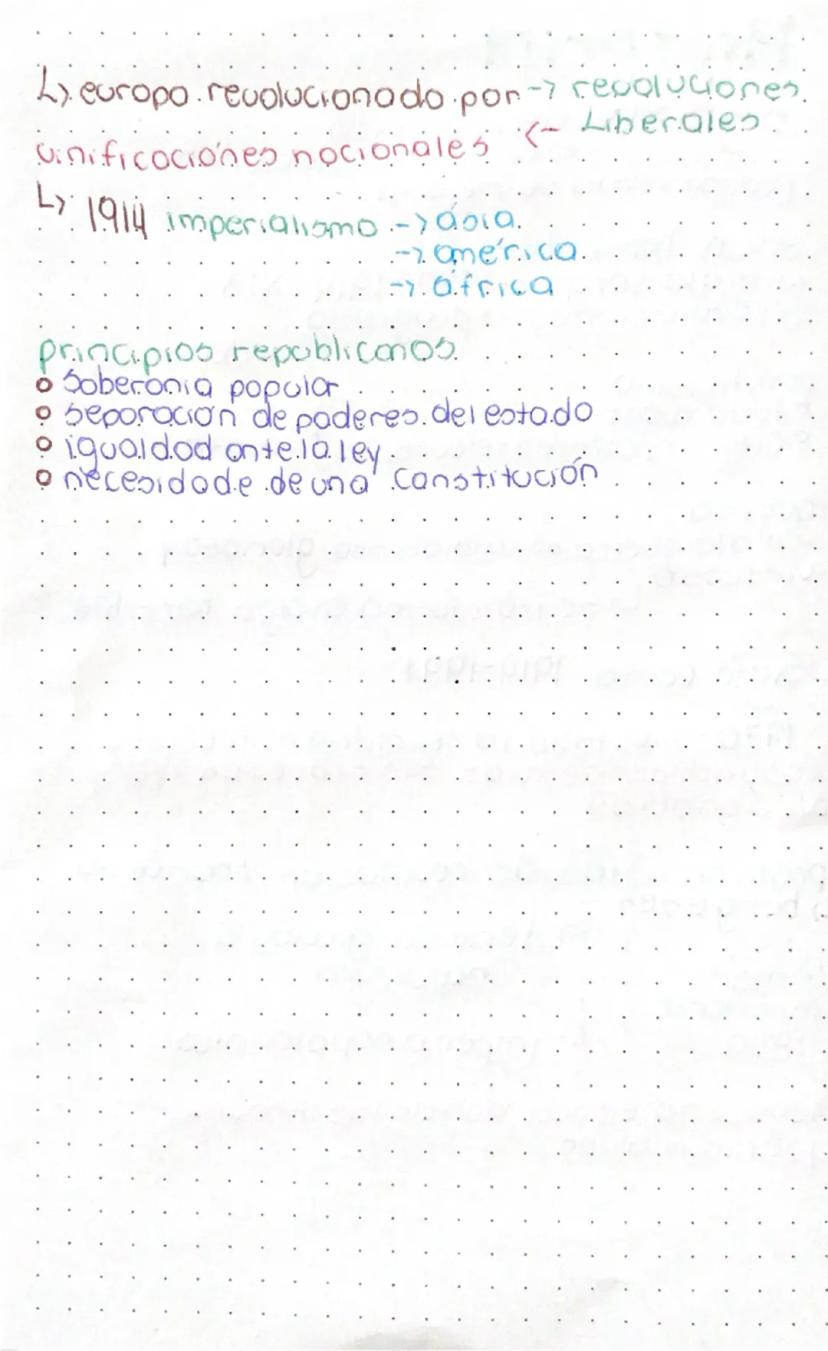 ↳ europa revolucionada por → revoluciones
← Liberales
unificaciones nacionales
↳ 1914 imperialismo → ásia
→ américa
→ africa
principios republicanos
o Soberonia popular
o separación de poderes del estado
o igualdad ante la ley
o necesidade de una constitución